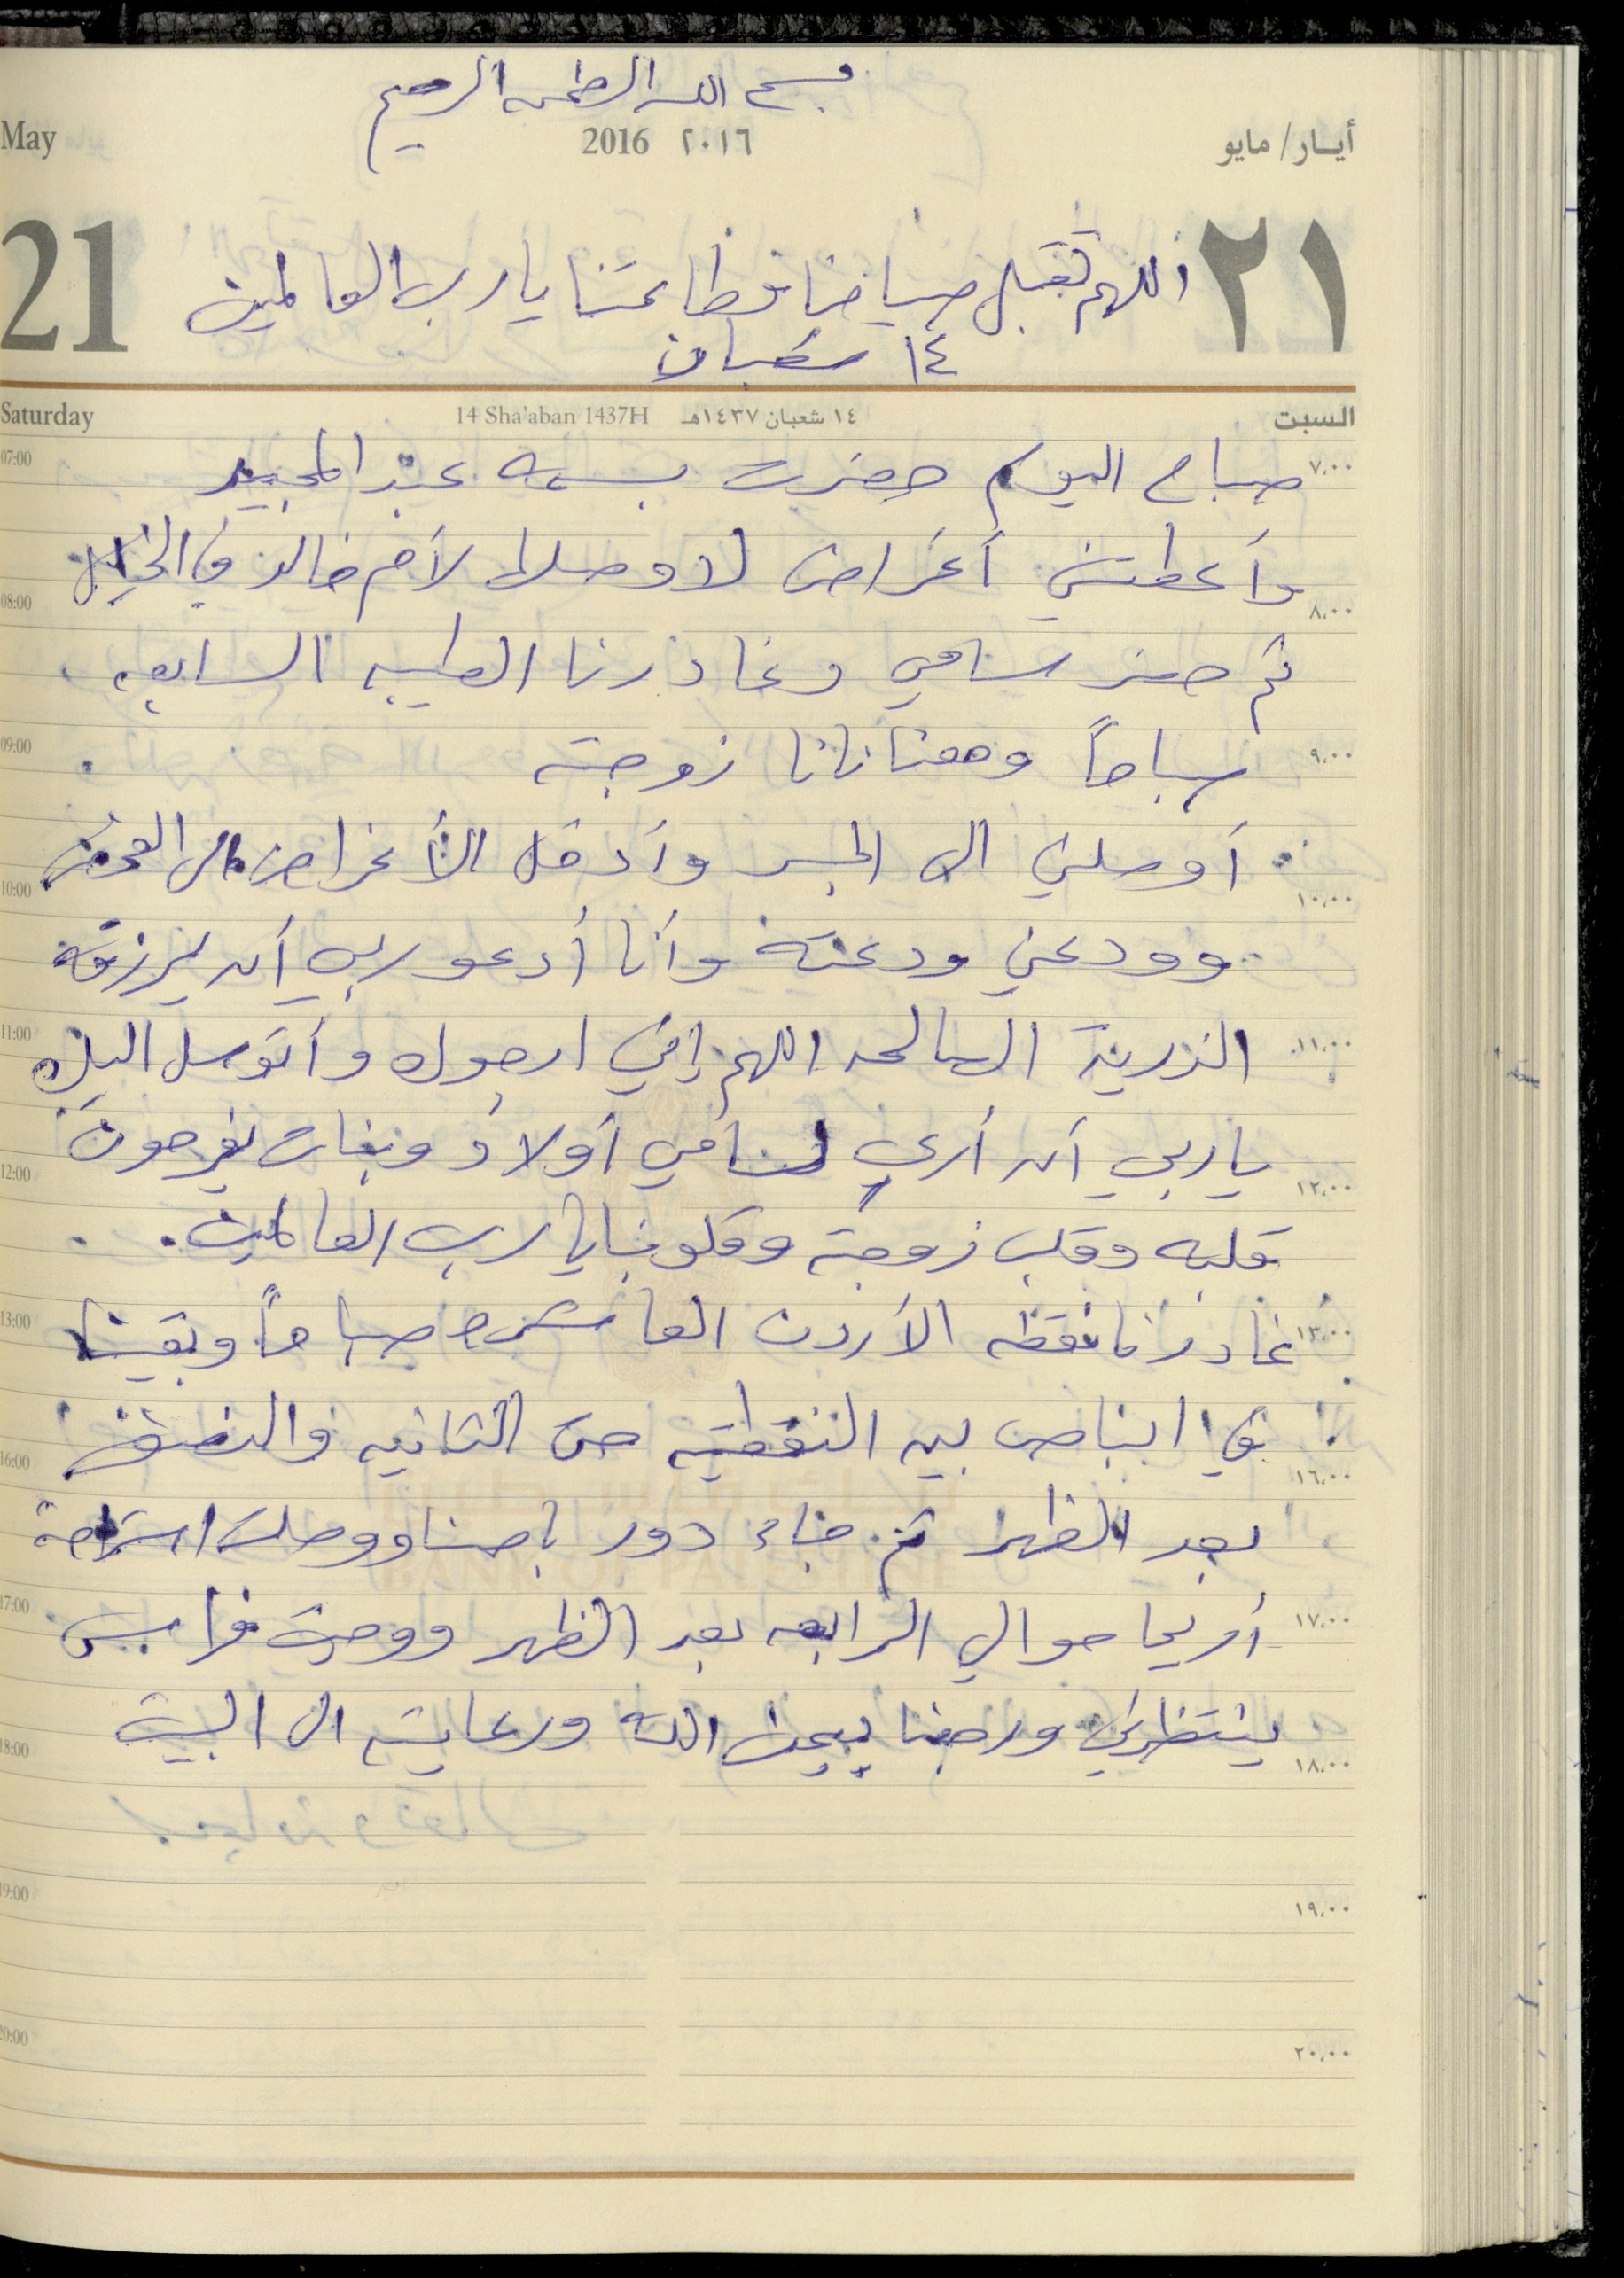 بسم الله الرحمن الرحيم
May 2016 ٢٠١٦ أيـار/ مايو
21 ٢١
اللهم تقبل صيامنا وطاعتنا يا رب العالمين
١٤ شعبان
Saturday 14 Sha'aban 1437H ١٤ شعبان ١٤٣٧هـ السبت
07:00 ٧،٠٠
صباح اليوم حضرت بسمه عبد المجيد
وأعطتني أغراض لاوصلها لأم خالد في الخليل
08:00 ٨،٠٠
ثم حضر سامي وغادرنا الطيبه السابعه
صباحاً ومعنا نانا زوجته
09:00 ٩،٠٠
أوصلني الى الجسر وأدخل الأغراض الى الفحص
10:00 ١٠،٠٠
وودعني ودعته وأنا أدعو ربي أن يرزقه
الذرية الصالحه اللهم إني ارجوك وأتوسل اليك
11:00 ١١،٠٠
يا ربي أن أرى لسامي أولاد وبنات يفرحون
12:00 ١٢،٠٠
قلبه وقلب زوجته وقلوبنا يا رب العالمين.
غادرنا نقطه الأردن العاشره صباحاً وبقينا
13:00 ١٣،٠٠
بقي الباص بين النقطتين حتى الثانيه والنصف
16:00 ١٦،٠٠
بعد الظهر ثم جاء دور باصنا ووصلت استراحة
BANK OF PALESTINE
أريحا حوالي الرابعه بعد الظهر ووجدت فراس
17:00 ١٧،٠٠
ينتظرني ورجعنا بعون الله ورعايته الى البيت
18:00 ١٨،٠٠
19:00 ١٩،٠٠
20:00 ٢٠،٠٠